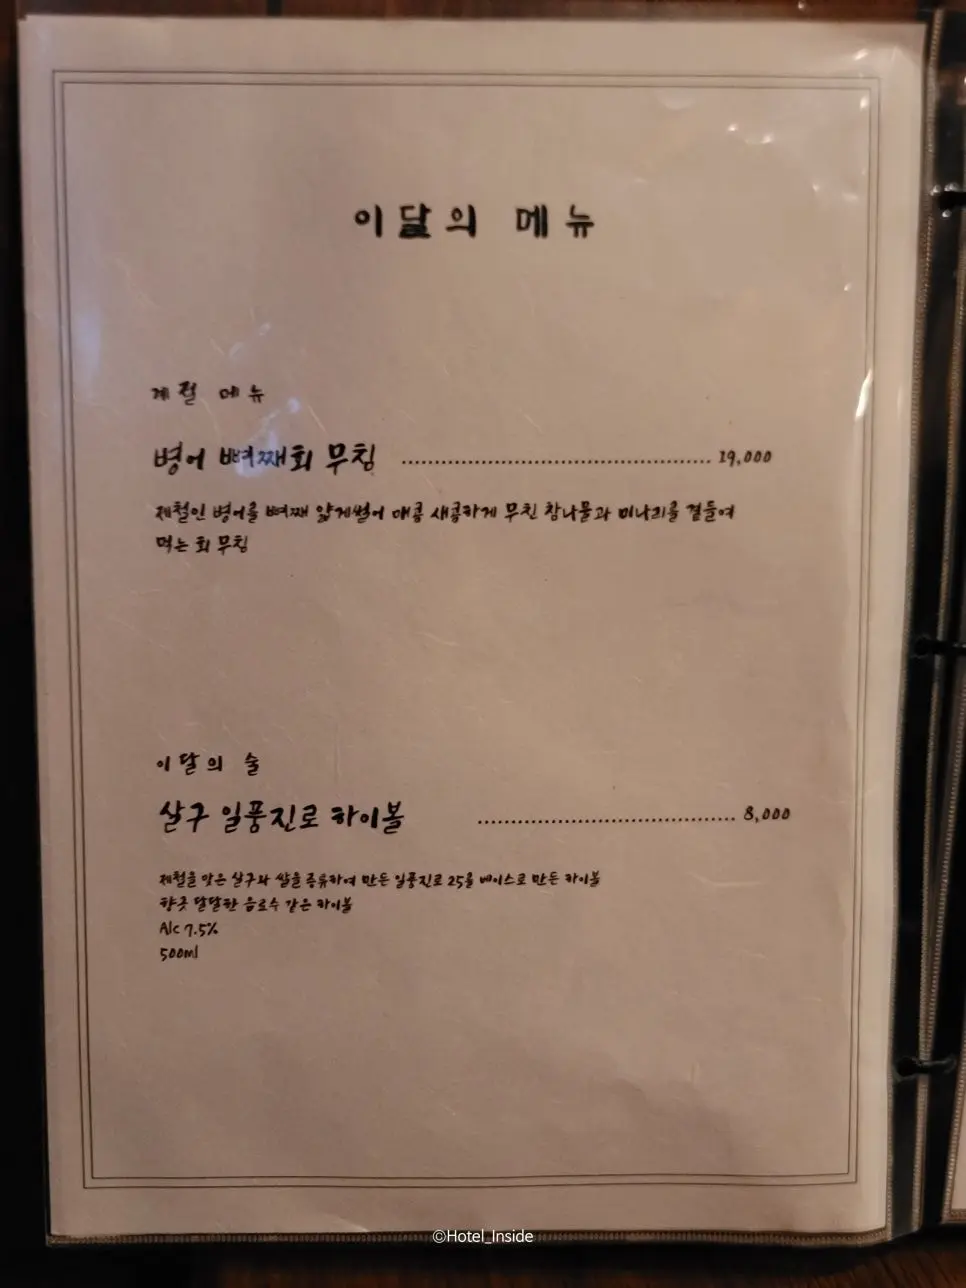 이달의 메뉴
계절 메뉴
병어 뼈째회 무침 ................................................ 19,000
제철인 병어를 뼈째 얇게썰어 매콤 새콤하게 무친 참나물과 미나리를 곁들여
먹는 회 무침
이달의 술
살구 일품진로 하이볼 ........................................ 8,000
제철을 맞은 살구와 쌀을 증류하여 만든 일품진로 25을 베이스로 만든 하이볼
향긋 달달한 음료수 같은 하이볼
Alc 7.5%
500ml
©Hotel_Inside